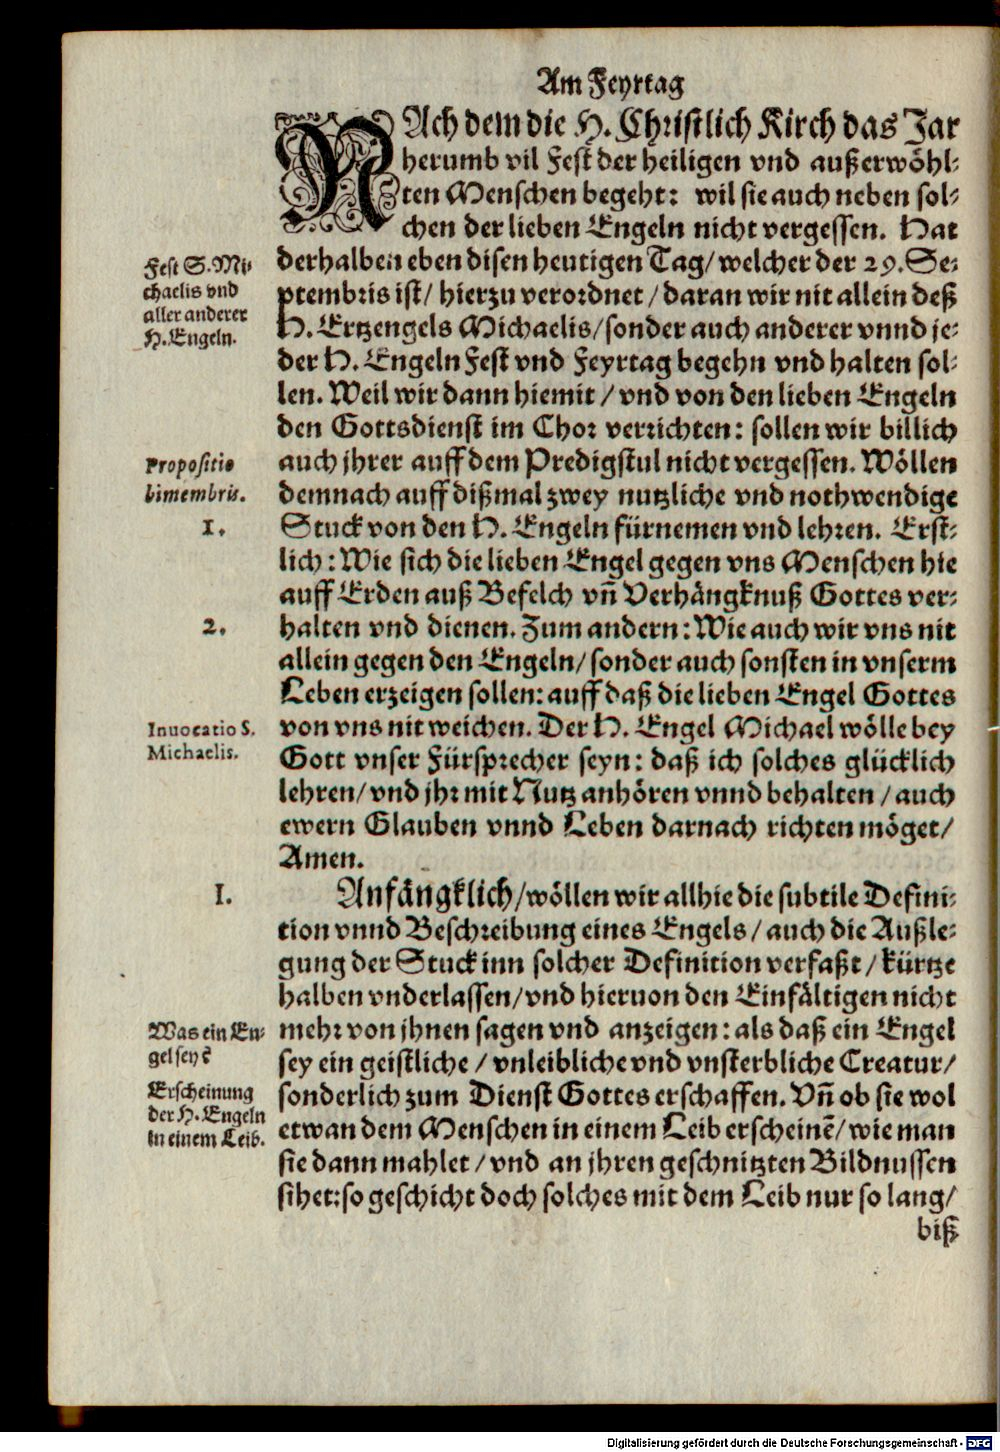 Am Feyrtag
NAch dem die H. Christlich Kirch das Jar
herumb vil Fest der heiligen vnd außerwöhl-
ten Menschen begeht: wil sie auch neben sol-
chen der lieben Engeln nicht vergessen. Hat
Fest S. Mi-
chaelis vnd
aller anderer
H. Engeln.
derhalben eben disen heutigen Tag/ welcher der 29. Se-
ptembris ist/ hierzu verordnet / daran wir nit allein deß
H. Ertzengels Michaelis/ sonder auch anderer vnnd je-
der H. Engeln Fest vnd Feyrtag begehn vnd halten sol-
len. Weil wir dann hiemit / vnd von den lieben Engeln
den Gottsdienst im Chor verrichten: sollen wir billich
Propositio
bimembris.
auch jhrer auff dem Predigstul nicht vergessen. Wöllen
demnach auff dißmal zwey nutzliche vnd nothwendige
1.
Stuck von den H. Engeln fürnemen vnd lehren. Erst-
lich: Wie sich die lieben Engel gegen vns Menschen hie
auff Erden auß Befelch vñ Verhängknuß Gottes ver-
2.
halten vnd dienen. Zum andern: Wie auch wir vns nit
allein gegen den Engeln/ sonder auch sonsten in vnserm
Leben erzeigen sollen: auff daß die lieben Engel Gottes
Inuocatio S.
Michaelis.
von vns nit weichen. Der H. Engel Michael wölle bey
Gott vnser Fürsprecher seyn: daß ich solches glücklich
lehren/ vnd jhr mit Nutz anhören vnnd behalten / auch
ewern Glauben vnnd Leben darnach richten möget/
Amen.
I.
Anfängklich/ wöllen wir allhie die subtile Defini-
tion vnnd Beschreibung eines Engels / auch die Außle-
gung der Stuck inn solcher Definition verfaßt / kürtze
halben vnderlassen/ vnd hieruon den Einfältigen nicht
Was ein En-
gel sey?
mehr von jhnen sagen vnd anzeigen: als daß ein Engel
sey ein geistliche / vnleibliche vnd vnsterbliche Creatur/
Erscheinung
der H. Engeln
in einem Leib.
sonderlich zum Dienst Gottes erschaffen. Vñ ob sie wol
etwan dem Menschen in einem Leib erscheinẽ/ wie man
sie dann mahlet / vnd an jhren geschnitzten Bildnussen
sihet: so geschicht doch solches mit dem Leib nur so lang/
biß
Digitalisierung gefördert durch die Deutsche Forschungsgemeinschaft - DFG